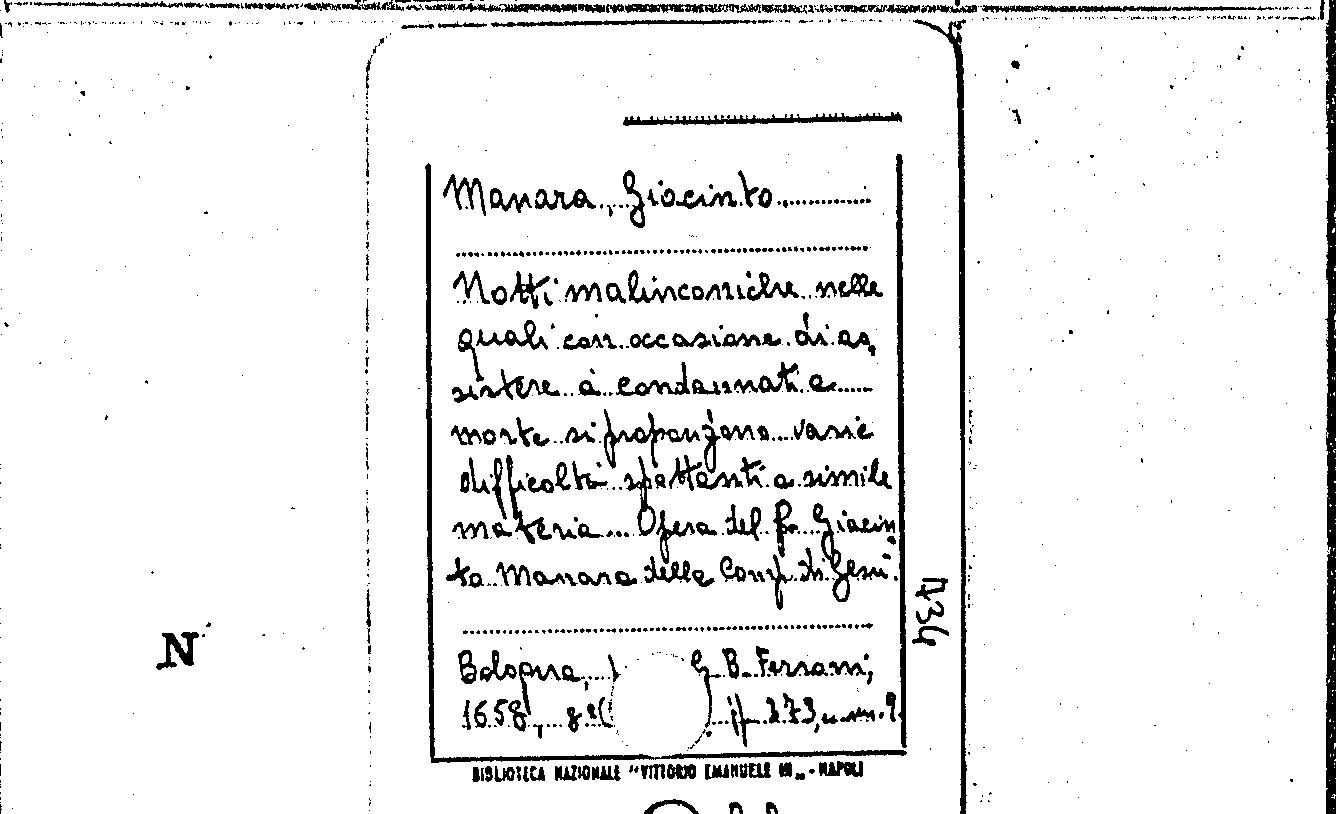 Manara, Giacinto
Notti malinconiche nelle
quali con occasione di as,
sistere a condannati a
morte si propongono varie
difficoltà spettanti a simile
materia... Opera del P. Giacin
to Manara della Comp. di Gesù.
Bologna, G. B. Ferroni,
1658, 8° p. 273,
BIBLIOTECA NAZIONALE "VITTORIO EMANUELE III„ - NAPOLI
N